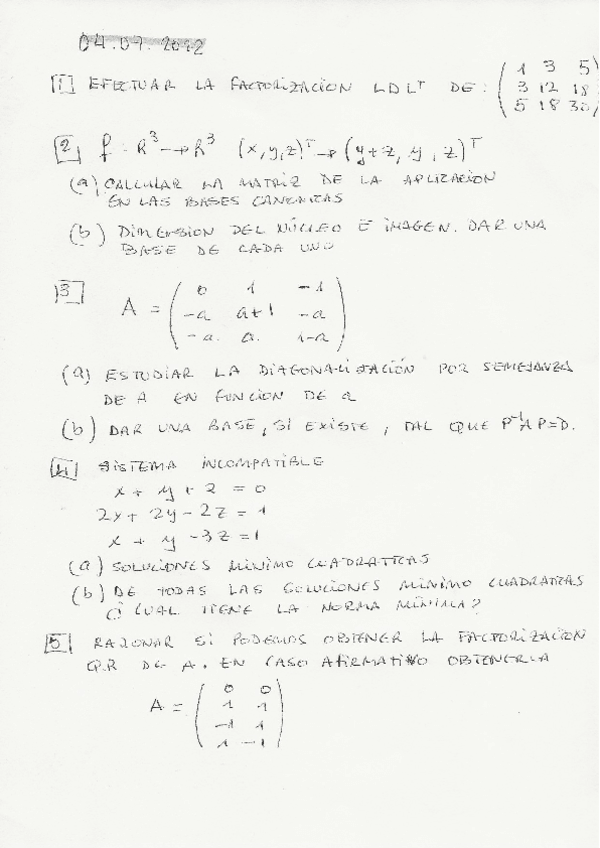 04.07.2012
1 EFECTUAR LA FACTORIZACION LDLT DE: ( 1 3 5
3 12 18
5 18 30 )
2 f: R³ → R³ (x,y,z)ᵀ → (y+z, y, z)ᵀ
(a) CALCULAR LA MATRIZ DE LA APLIZACION
EN LAS BASES CANONICAS
(b) DIMENSION DEL NÚCLEO E IMAGEN. DAR UNA
BASE DE CADA UNO
3 A = ( 0 1 -1
-a a+1 -a
-a a 1-a )
(a) ESTUDIAR LA DIAGONALIZACIÓN POR SEMEJANZA
DE A EN FUNCION DE a
(b) DAR UNA BASE, SI EXISTE, TAL QUE P⁻¹AP=D.
4 SISTEMA INCOMPATIBLE
x + y + z = 0
2x + 2y - 2z = 1
x + y - 3z = 1
(a) SOLUCIONES MINIMO CUADRATICAS
(b) DE TODAS LAS SOLUCIONES MINIMO CUADRATICAS
¿ CUAL TIENE LA NORMA MÍNIMA?
5 RAZONAR SI PODEMOS OBTENER LA FACTORIZACION
QR DE A. EN CASO AFIRMATIVO OBTENERLA
A = ( 0 0
1 1
-1 1
1 -1 )